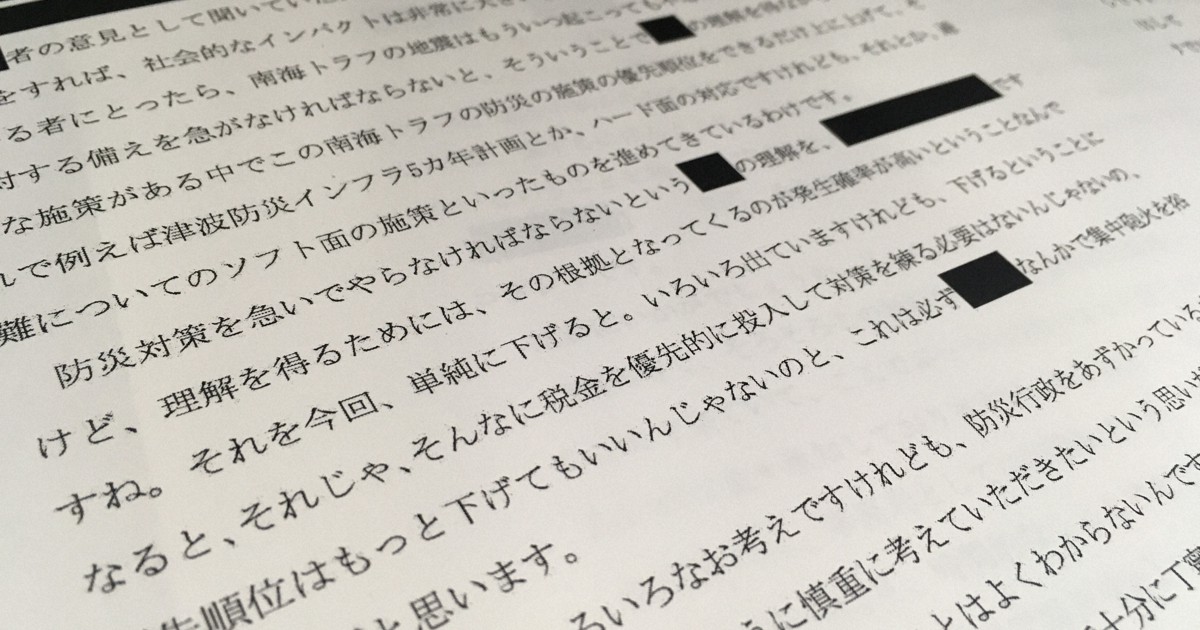 者の意見として聞いていた
をすれば、社会的なインパクトは非常に大き
る者にとったら、南海トラフの地震はもういつ起こっても
対する備えを急がなければならないと、そういうことで の理解を得な
な施策がある中でこの南海トラフの防災の施策の優先順位をできるだけ上に上げて、そ
んで例えば津波防災インフラ5カ年計画とか、ハード面の対応ですけれども、それとか、避
難についてのソフト面の施策といったものを進めてきているわけです。
防災対策を急いでやらなければならないという の理解を、 です
けど、理解を得るためには、その根拠となってくるのが発生確率が高いということなんで
すね。それを今回、単純に下げると。いろいろ出ていますけれども、下げるということに
なると、それじゃ、そんなに税金を優先的に投入して対策を練る必要はないんじゃないの、
先順位はもっと下げてもいいんじゃないのと、これは必ず なんかで集中砲火を浴
と思います。
ろいろなお考えですけれども、防災行政をあずかっている
うに慎重に考えていただきたいという思い
とはよくわからないんです
十分に丁寧